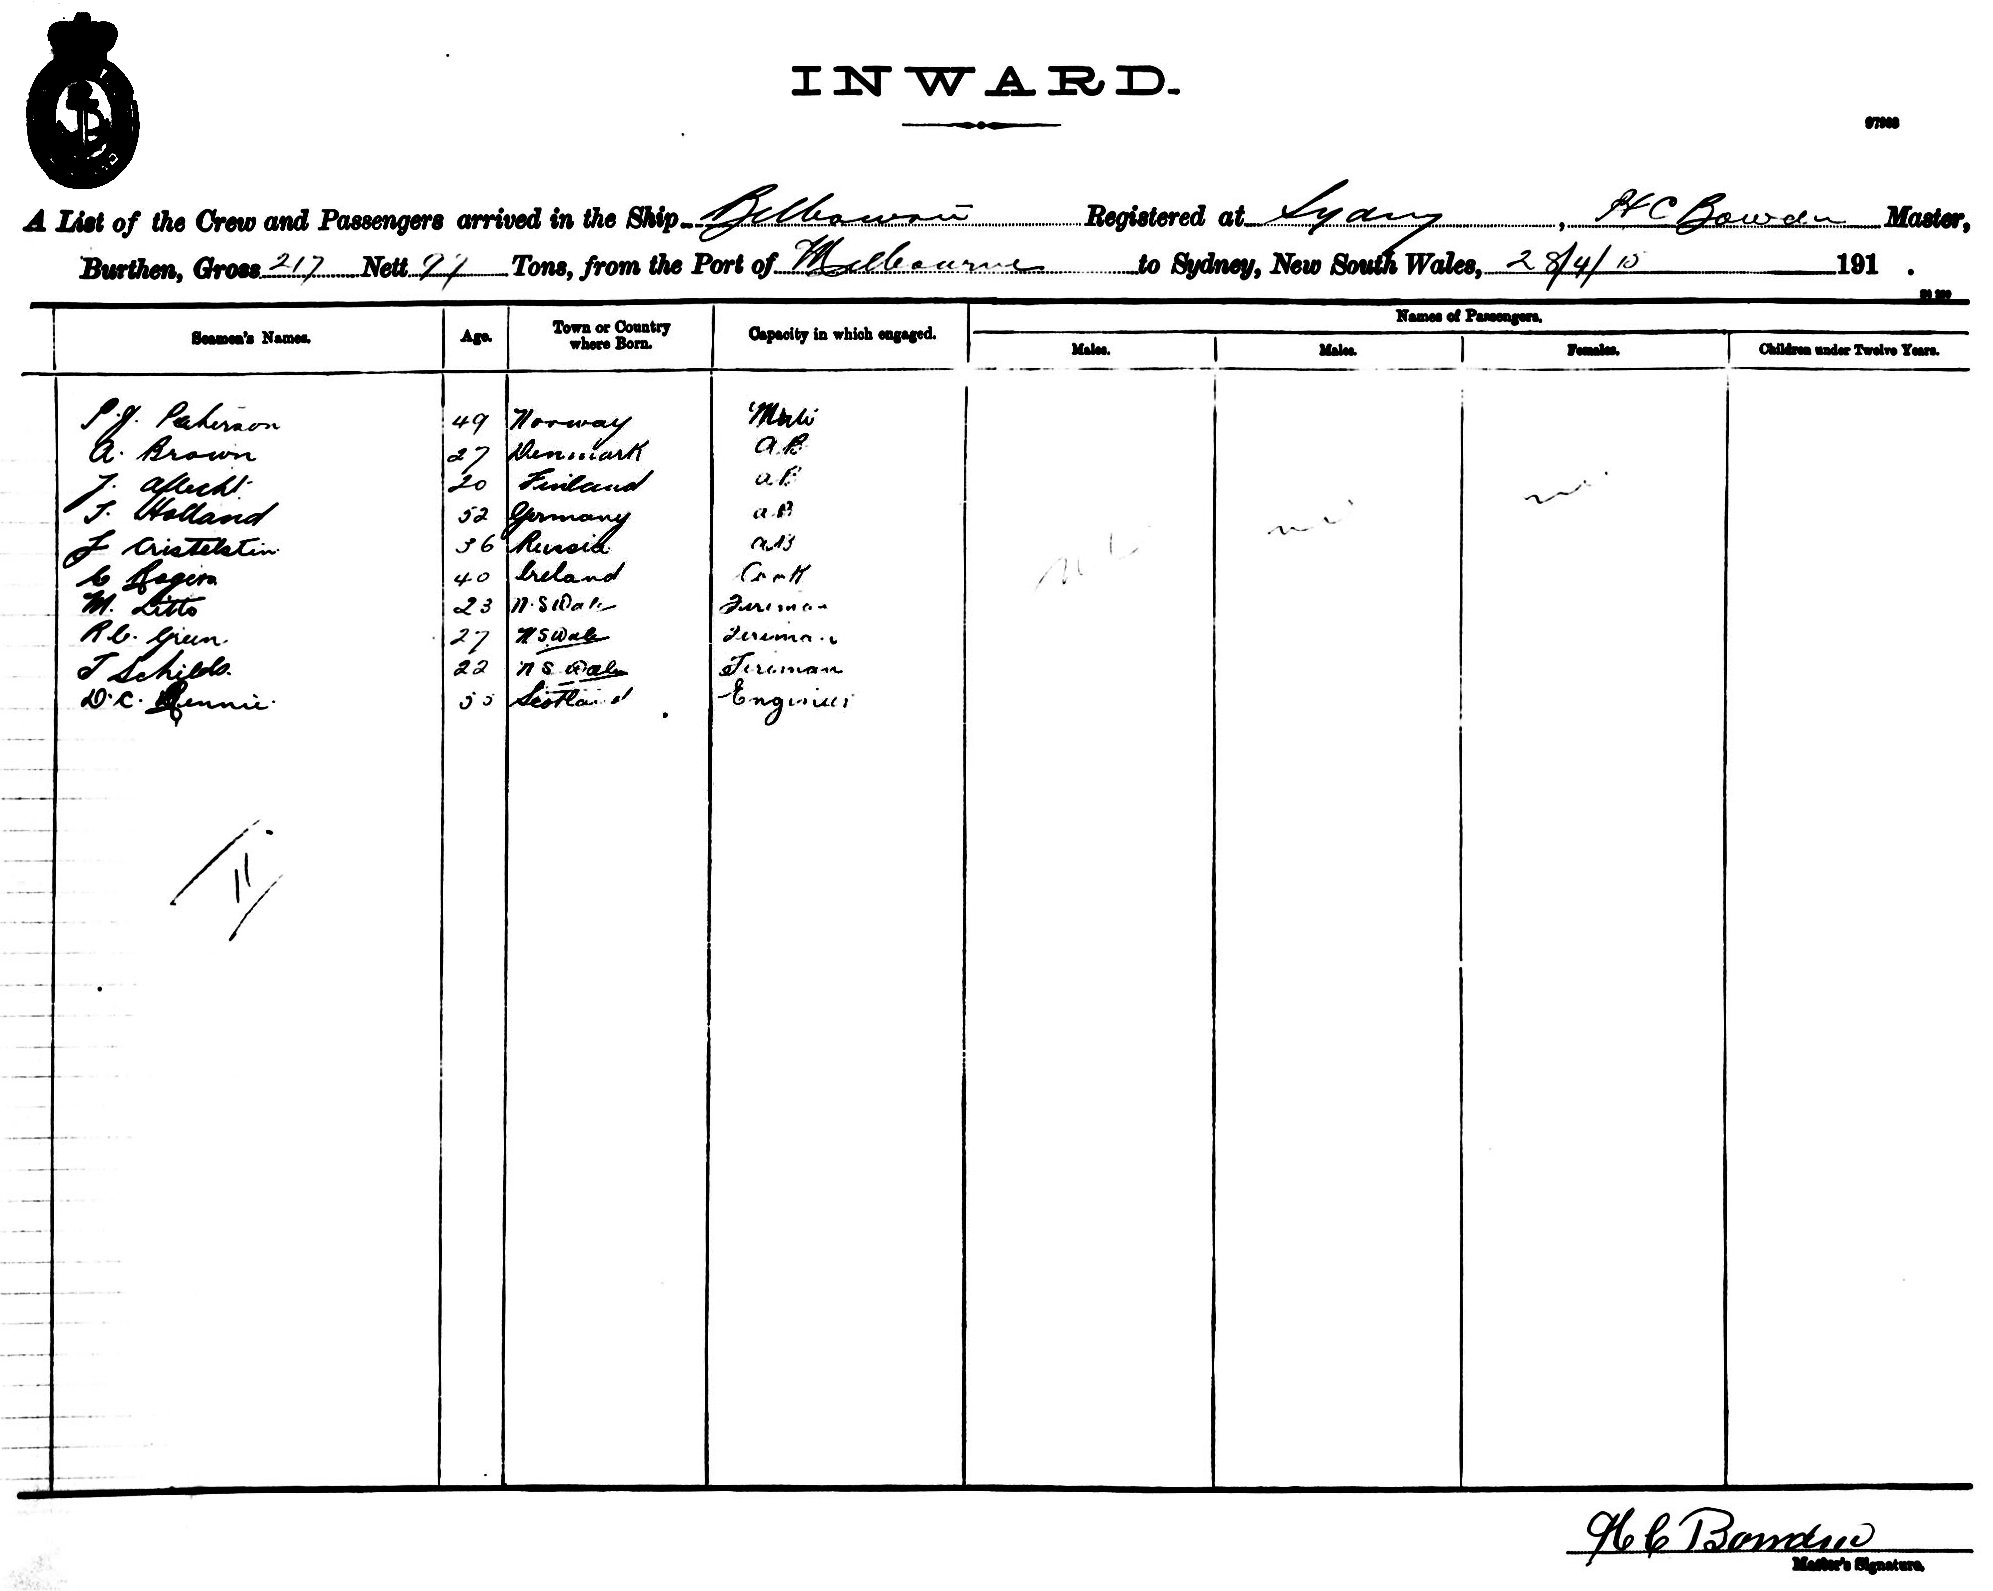 INWARD.
97903
A List of the Crew and Passengers arrived in the Ship Belbowrie Registered at Sydney, H C Bowden Master,
Burthen, Gross 217 Nett 97 Tons, from the Port of Melbourne to Sydney, New South Wales, 28/4/15 191 .
Names of Passengers.
Seamen's Names. Age. Town or Country where Born. Capacity in which engaged. Males. Males. Females. Children under Twelve Years.
P.J. Peterson 49 Norway Mate
A. Brown 27 Denmark A.B
J. 20 Finland a.B
J. Holland 52 Germany a.B
J 36 Russia a.B
C Rogers 40 Ireland Cook
M. Litto 23 N.S Wale Fireman
R C. Green. 27 N S Wale Fireman
J Schilds. 22 N S Wales Fireman
D. C. Rennie. 55 Scotland Engineer
nil nil nil
11
H C Bowden
Master's Signature.